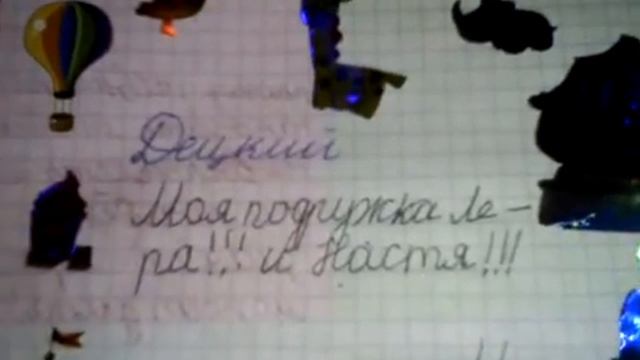 Децкий
Моя подружка Ле-
ра!!! и Настя!!!